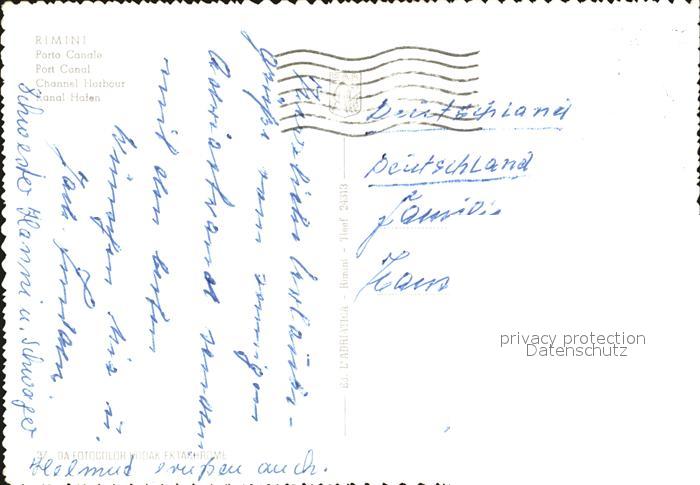 RIMINI
Porto Canale
Port Canal
Channel Harbour
Kanal Hafen
Herzliche Urlaubs-
grüße vom sonnigen
Adriastrand senden
mit den besten
Wünschen
Fam.
Schwester Hanni u. Schwager
Helmut grüßen auch.
Deutschland
Deutschland
Familie
Hans
Ed. L'ADRIATICA - Rimini -
37 - DA FOTOCOLOR KODAK EKTACHROME
privacy protection
Datenschutz